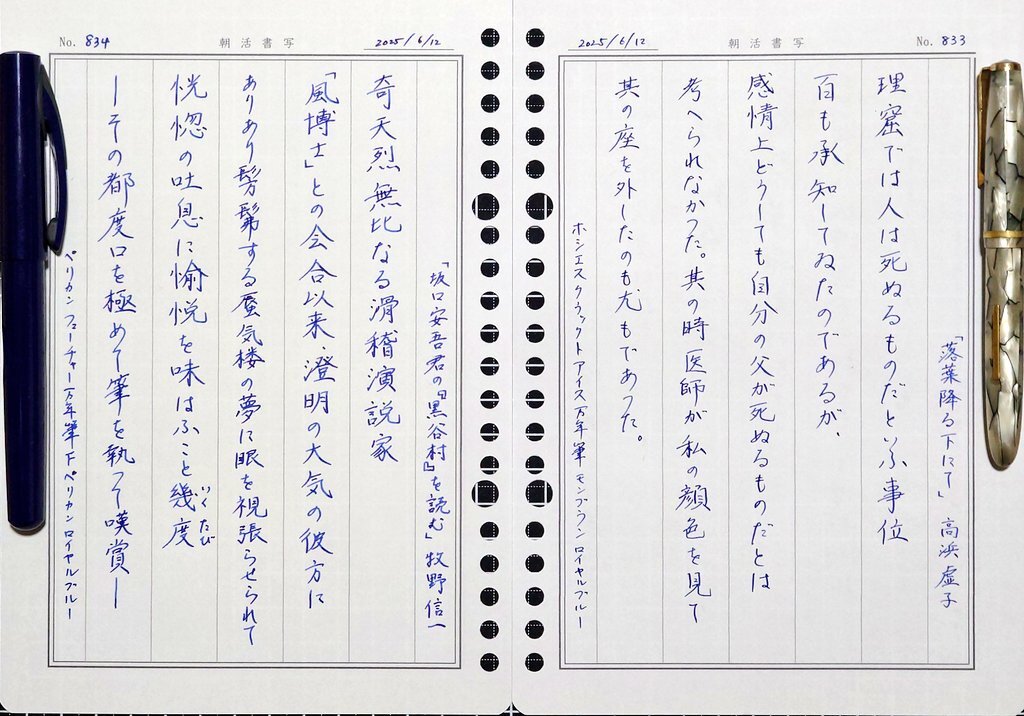 No. 833
朝活書写
2025/6/12
「落葉降る下にて」高浜虚子
理窟では人は死ぬるものだといふ事位
百も承知してゐたのであるが、
感情上どうしても自分の父が死ぬるものだとは
考へられなかつた。其の時医師が私の顔色を見て
其の座を外したのも尤もであつた。
ホシエスクラックトアイス万年筆 モンブランロイヤルブルー
2025/6/12
朝活書写
No. 834
「坂口安吾君の『黒谷村』を読む」牧野信一
奇天烈無比なる滑稽演説家
「風博士」との会合以来、澄明の大気の彼方に
ありあり髣髴する蜃気楼の夢に眼を視張らせられて
恍惚の吐息に愉悦を味はふこと幾度
いくたび
―その都度口を極めて筆を執つて嘆賞―
ペリカンフューチャー万年筆F ペリカンロイヤルブルー